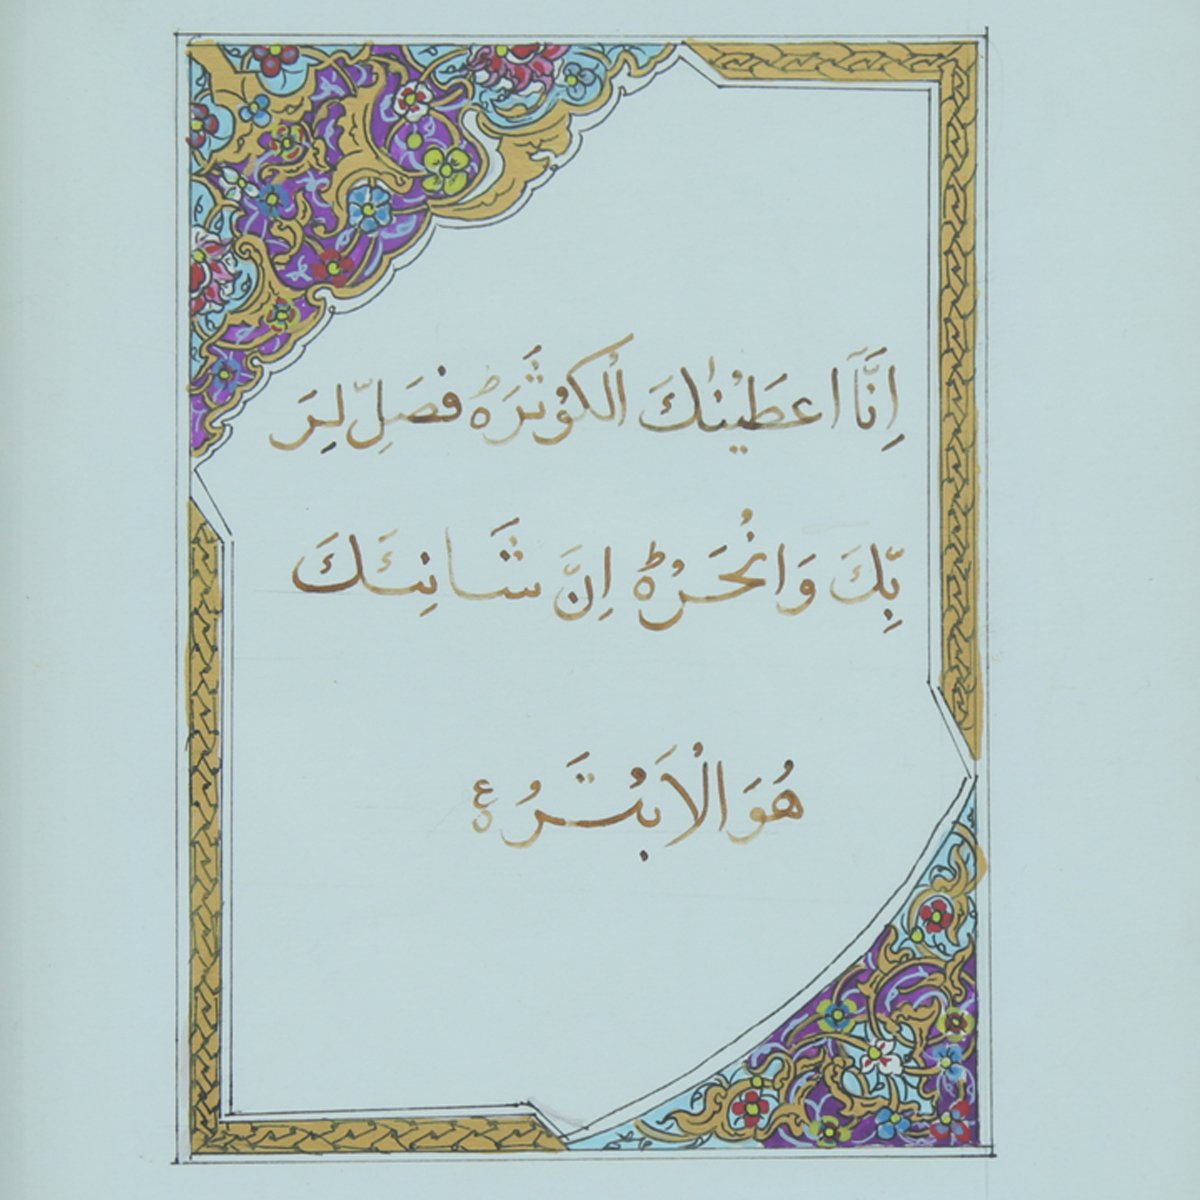 اِنَّآ اَعطَيْنٰكَ الْكَوْثَرَ ۝ فَصَلِّ لِرَ
بِّكَ وَانْحَرْ ۝ اِنَّ شَانِئَكَ
هُوَ الْاَبْتَرُ ۝ ع